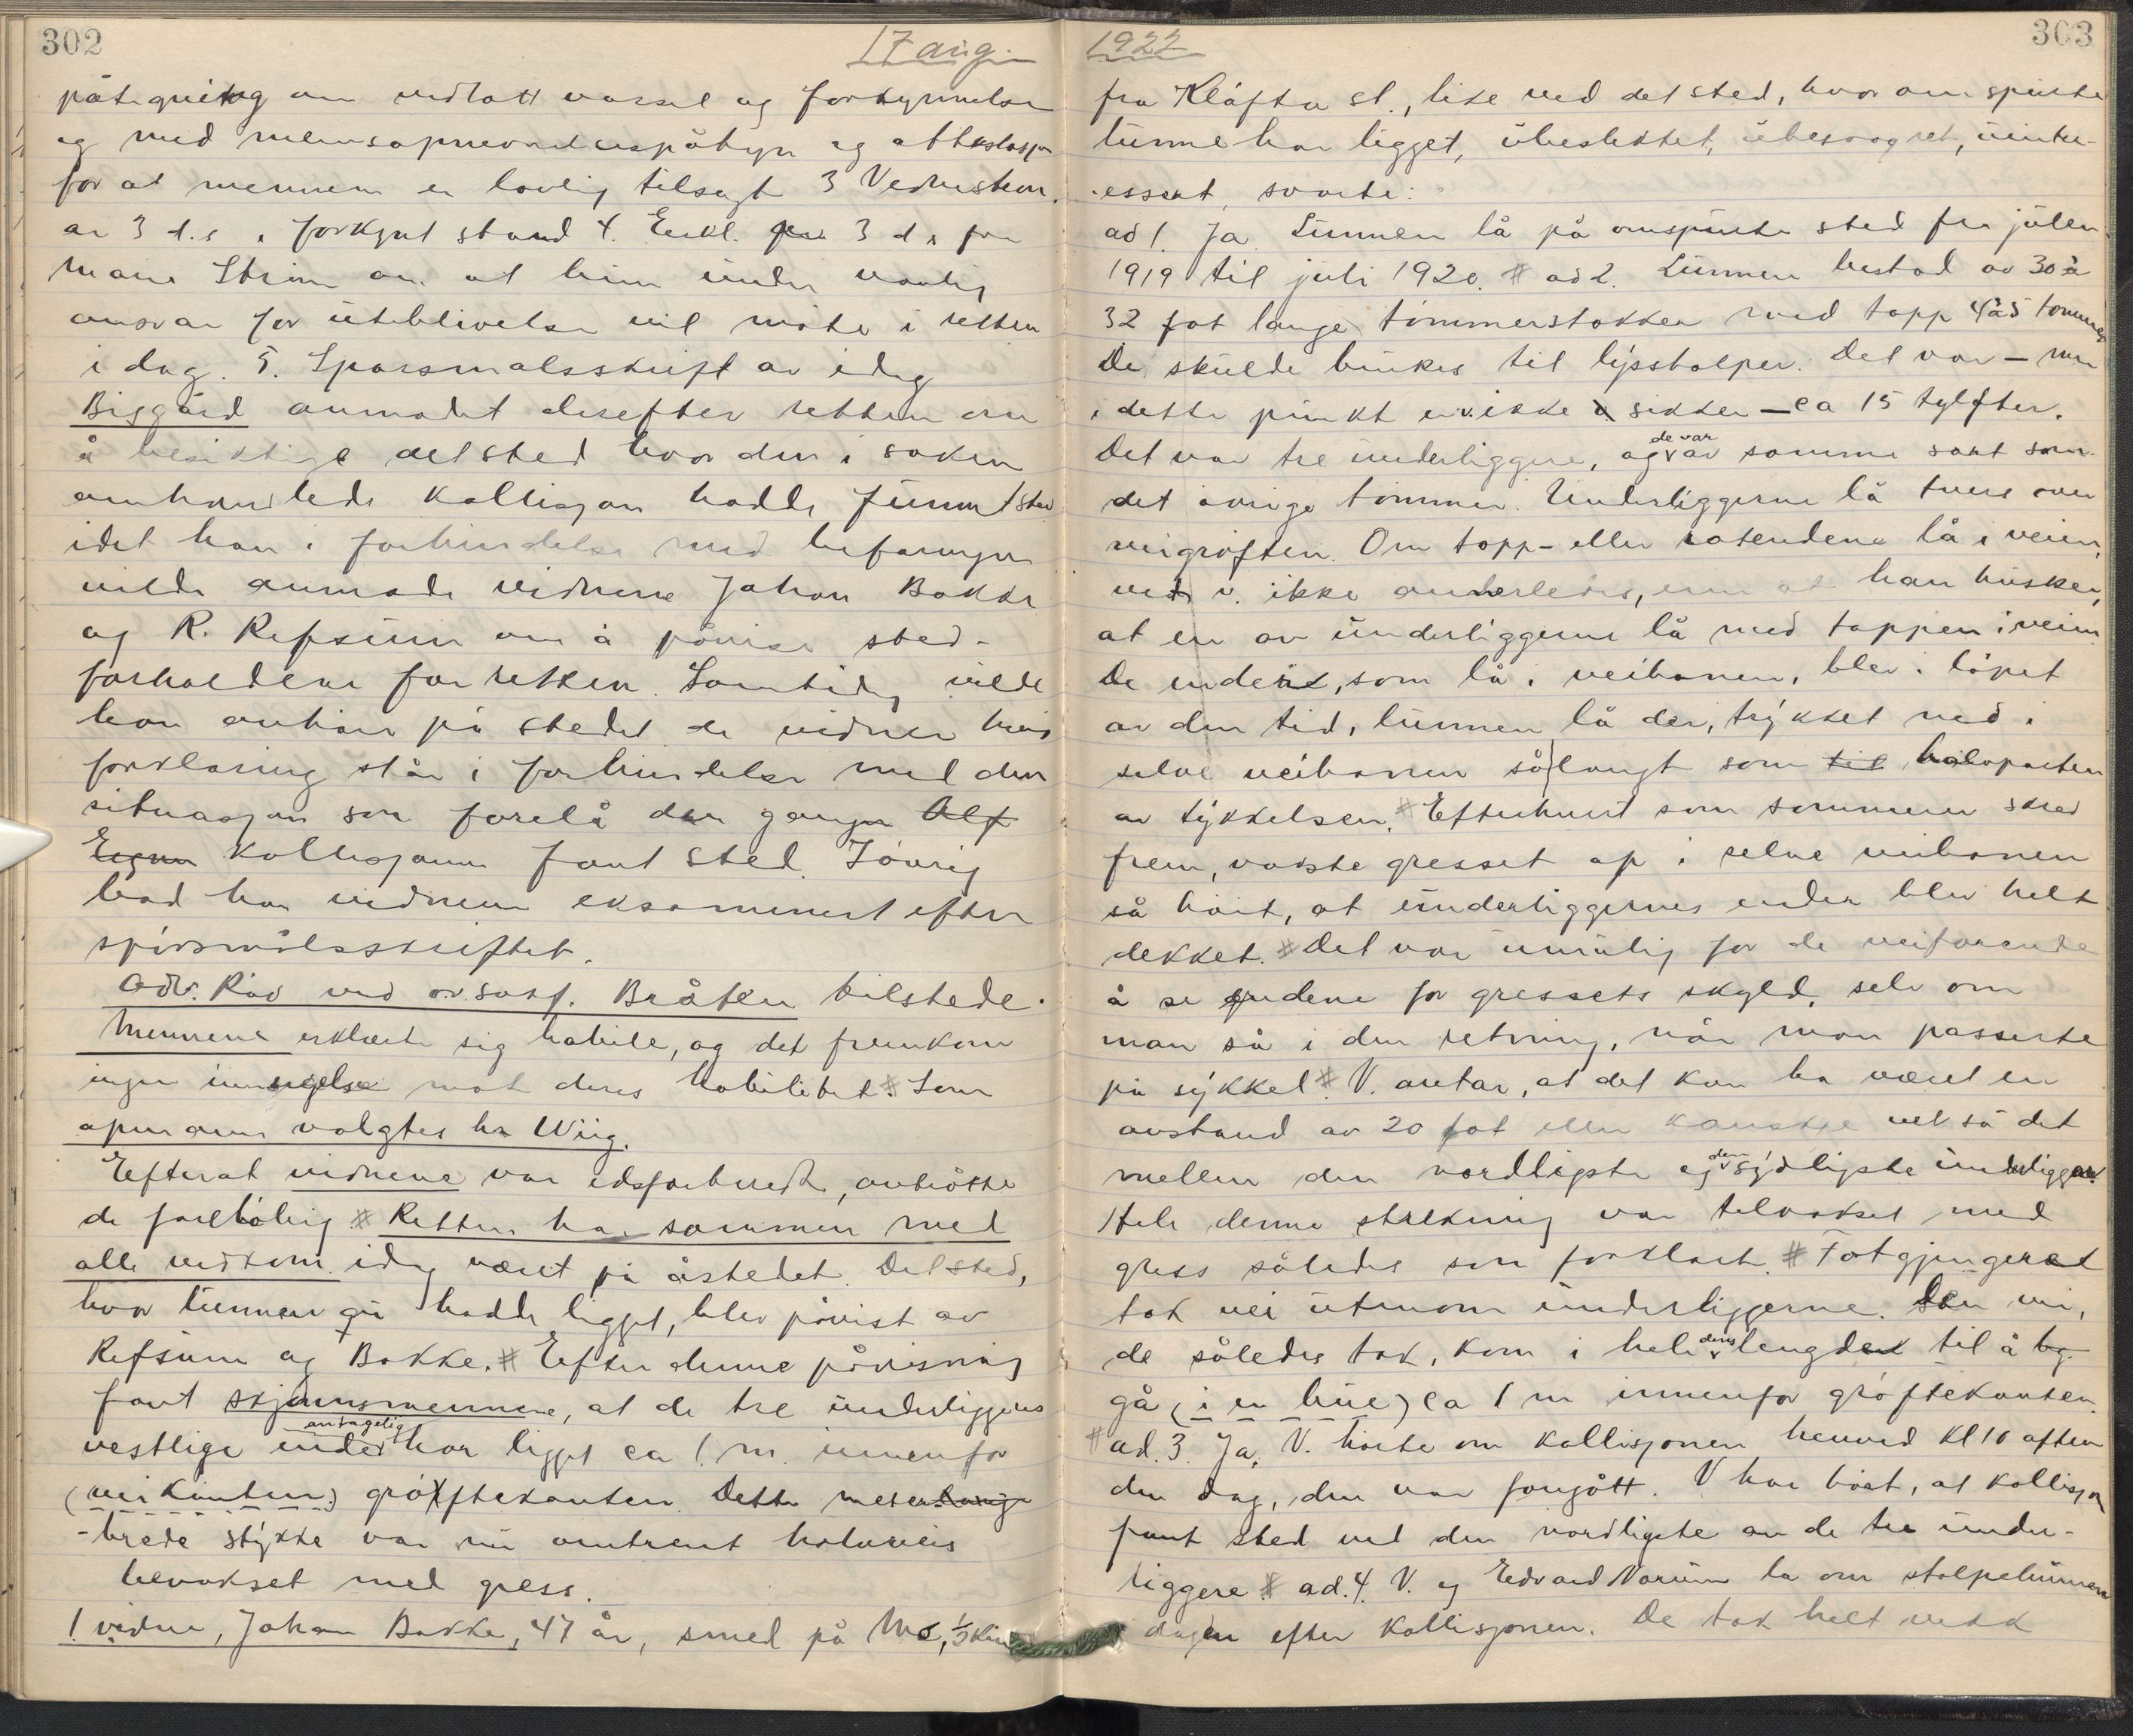 302
17 aug.
påtegning om vedtatt varsel og forkynnelse
og med mensopnevnelsespåtegn og attestasjon
for at mennene er lovlig tilsagt 3 Vidnestevn.
av 3 d.s. i forkynt stand 4. Erkl. fra 3 d.s. fra
Marie Strøm om at hun under vanlig
ansvar for uteblivelse vil møte i retten
i dag. 5. Spørsmålsskrift av idag
Bisgård anmodet derefter retten om
å besiktige det sted hvor den i saken
omhandlede kollisjon hadde funnet sted
idet han i forbindelse med befaringen
vilde anmode vidnene Johan Bakke
og R. Refsum om å påvise sted-
forholdene for retten. Samtidig vilde
han avhøre på stedet de vidner hvis
forklaring står i forbindelse med den
situasjon som forelå den gangen Alf
Eignn kollisjonen fant sted. Iøvrig
bad han vidnene eksaminert efter
spørsmålsskriftet.
Adv. Råd ved o.r.sakf. Bråten tilstede.
Mennene erklærte sig habile, og det fremkom
ingen innsigelse mot deres habilitet. # Som
opmann valgtes hr Wiig.
Efterat vidnene var edsforberedt, avtrådte
de foreløbig # Retten har sammen med
alle vedkom. idag været på åstedet. Det sted,
hvor lunnen gu hadde ligget, blev påvist av
Refsum og Bakke. # Efter denne påvisning
fant skjønnsmennene, at de tre underliggeres
antagelig
vestlige ender har ligget ca 1 m. innenfor
(veikanten) grøftekanten. Dette meter lange
- brede stykke var nu omtrent halvveis
bevokset med gress.
1 vidne, Johan Bakke, 47 år, smed på Mo, 1/2 km
1922
303
fra Kløfta st., like ved det sted, hvor omspurte
lunne har ligget, ubeslektet, ubesvogret, uinter-
essert, svarte:
ad 1. Ja. Lunnen lå på omspurte sted fra julen
1919 til juli 1920. # ad 2. Lunnen bestod av 30 à
32 fot lange tømmerstokker med topp 4 à 5 tommer
De skulde brukes til lysstolper. Det var – men
i dette punkt er v. ikke sikker – ca 15 tylfter.
de var
Det var tre underliggere, og av samme sort som
det øvrige tømmer. Underliggerne lå tvers over
veigrøften. Om topp- eller rotendene lå i veien,
vet v. ikke anderledes, enn at han husker,
at en av underliggerne lå med toppen i veien
De ender, som lå i veibanen, blev i løpet
av den tid, lunnen lå der, trykket ned i
selve veibanen så langt som til halvparten
av tykkelsen. # Efterhvert som sommeren skred
frem, vokste gresset op i selve veibanen
så høit, at underliggernes ender blev helt
dekket. # Det var umulig for de veifarende
å se endene for gressets skyld, selv om
man så i den retning, når man passerte
på sykkel # V. antar, at det kan ha været en
avstand av 20 fot eller kanskje vel så det
den
mellem den nordligste og sydligste underligger
Hele denne strekning var tilvokset med
gress således som forklart. # Fotgjengere
tok vei utenom underliggerne. Den vei,
deres
de således tok, kom i hele lengde til å bg
gå (i en bue) ca 1 m innenfor grøftekanten.
# ad. 3. Ja, V. hørte om kollisjonen henved kl 10 aften
den dag, den var foregått. V har hørt, at kollisjon
fant sted ved den nordligste av de tre under-
liggere # ad. 4. V. og Edvard Norum la om stolpelunnen
dagen efter kollisjonen. De tok helt vekk